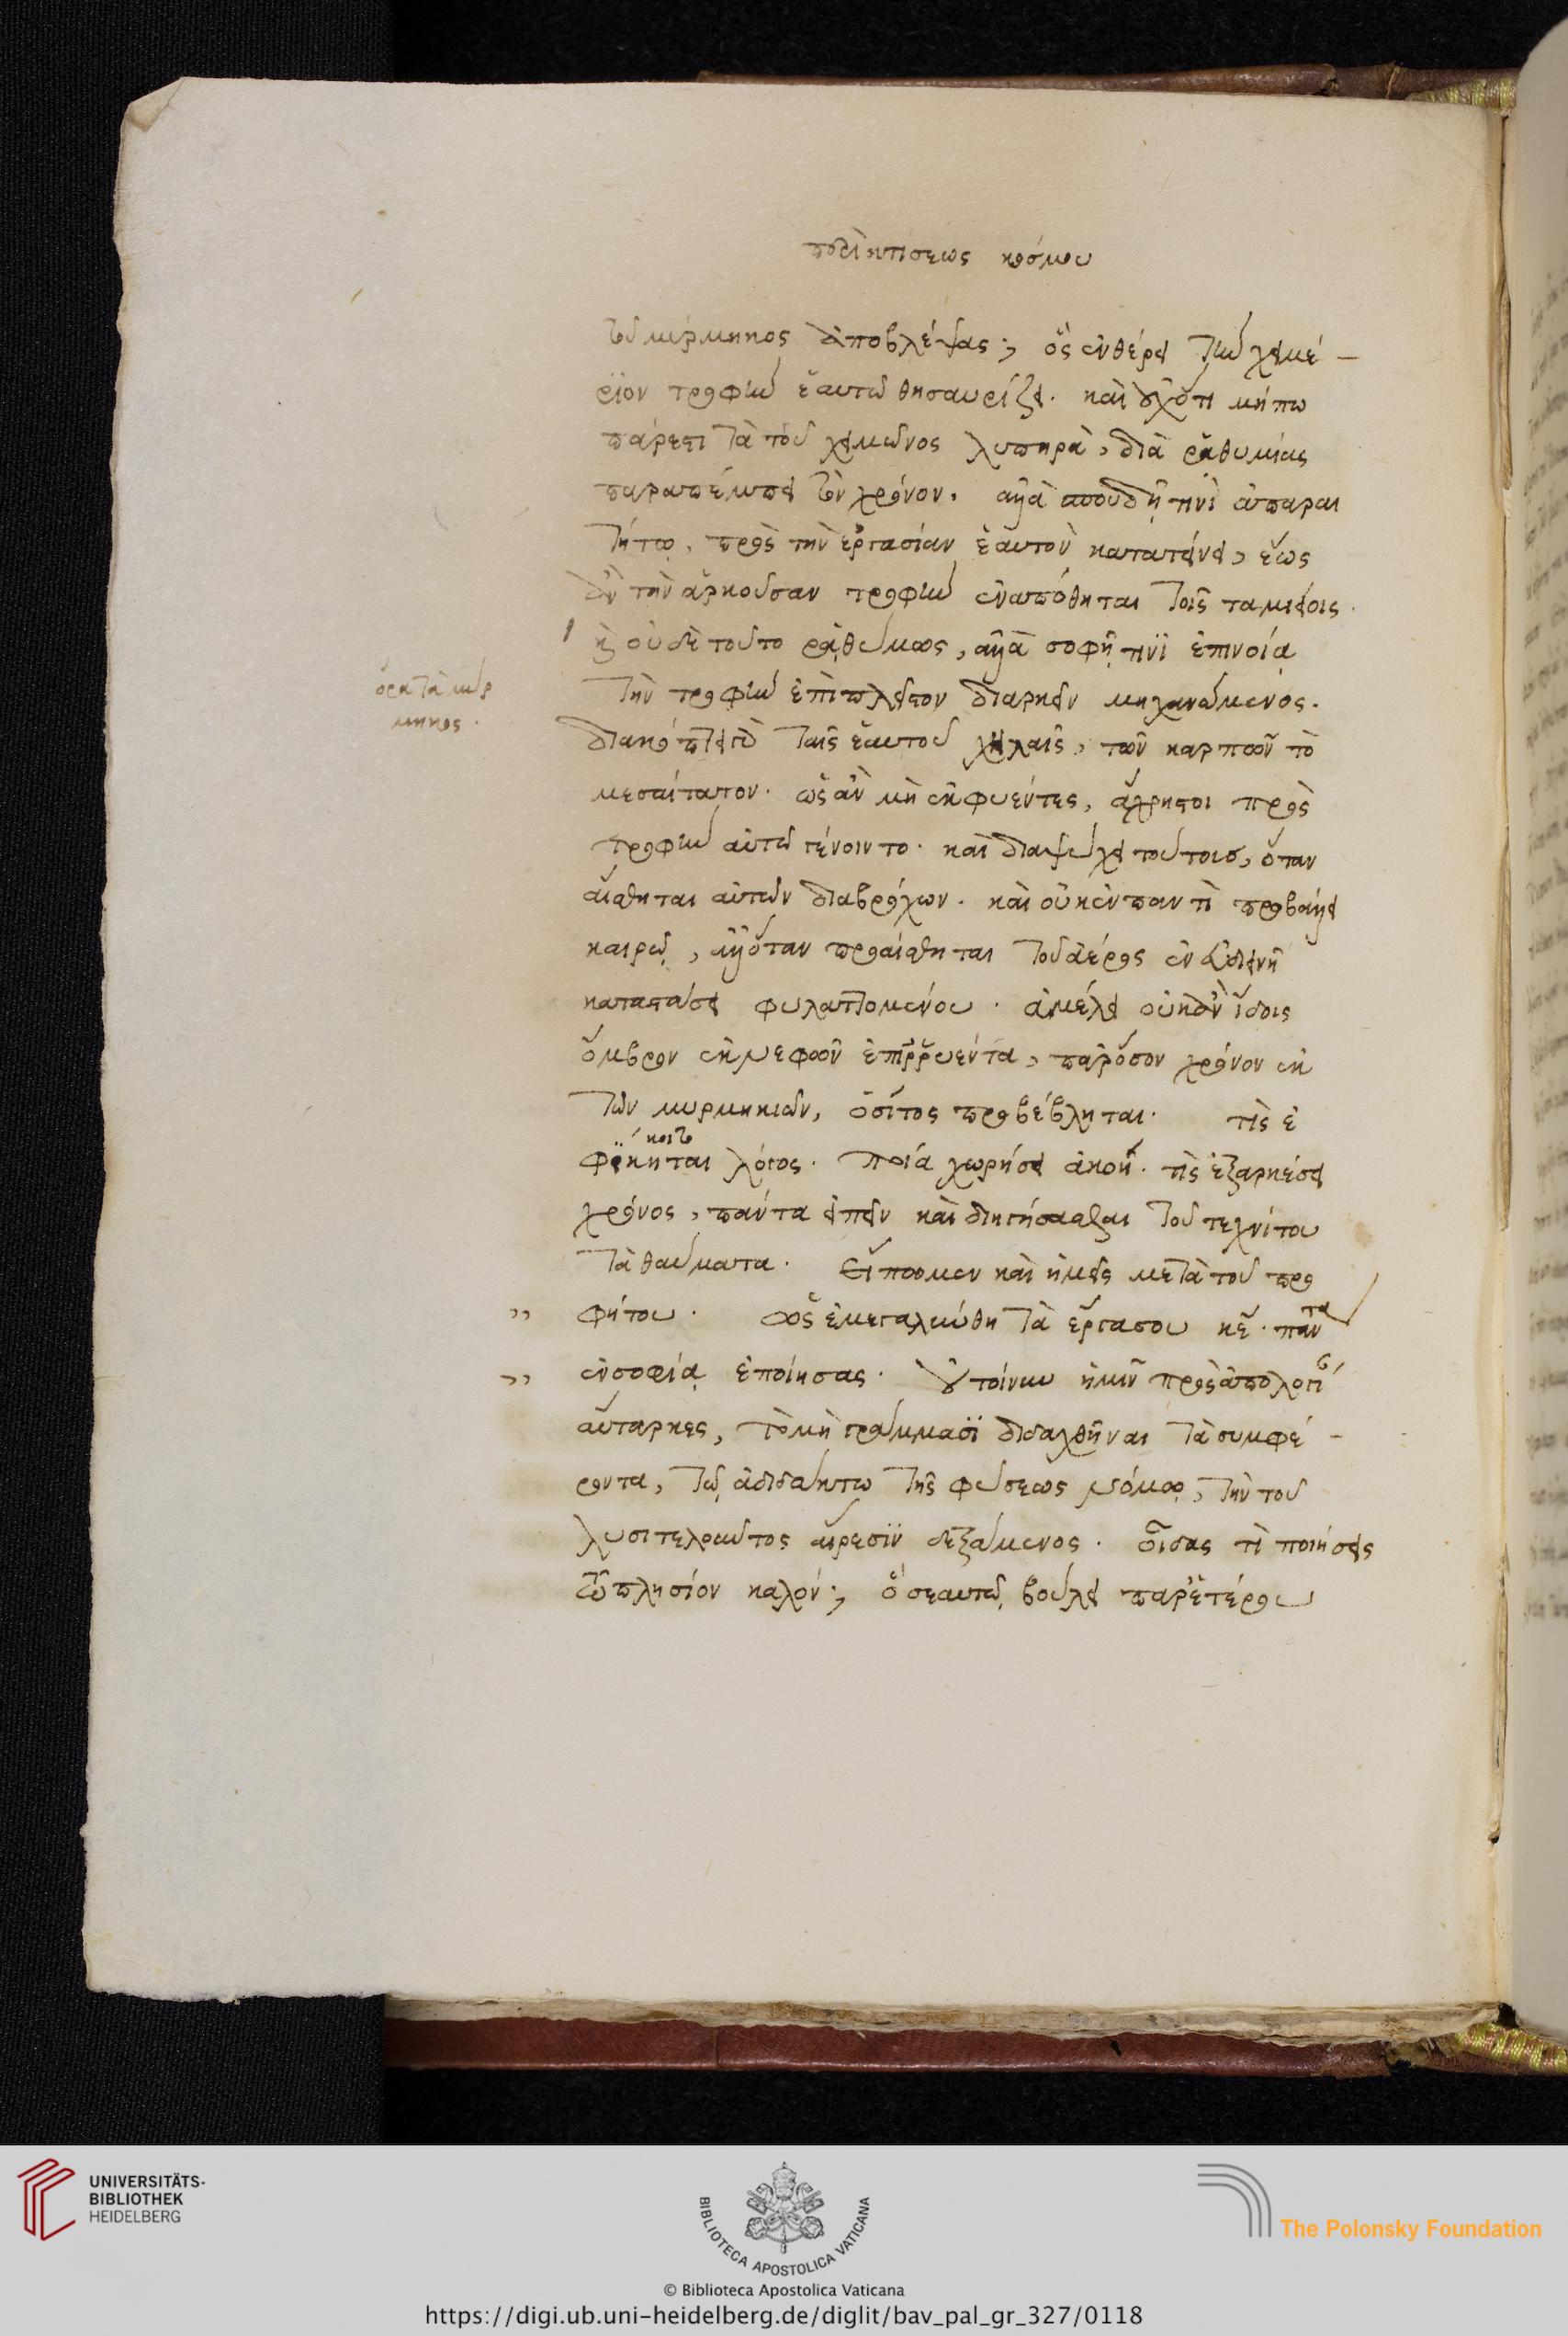 περὶ κτίσεως κόσμου
τοῦ μύρμηκος ἀποβλέψας; ὃς ἐν θέρει τὴν χειμέ-
ριον τροφὴν ἑαυτῶ θησαυρίζει. καὶ οὐχ ὅτι μήπω
πάρεστι τὰ τοῦ χειμῶνος λυπηρὰ, διὰ ῥαθυμίας
παραπέμπει τὸν χρόνον. ἀλλὰ σπουδῇ τινὶ ἀπαραι
τήτῳ, πρὸς τὴν ἐργασίαν ἑαυτὸν κατατείνει, ἕως
ἂν τὴν ἀρκοῦσαν τροφὴν ἐναπόθηται τοῖς ταμιείοις.
καὶ οὐδὲ τοῦτο ῥᾳθύμως, ἀλλὰ σοφῇ τινὶ ἐπινοίᾳ
τὴν τροφὴν ἐπιπλεῖστον διαρκεῖν μηχανώμενος.
ὅρα τὰ μύρ
μηκος.
διακόπτει γὰρ ταῖς ἑαυτοῦ χηλαῖς, τῶν καρπῶν τὸ
μεσαίτατον. ὡς ἂν μὴ ἐκφυέντες, ἄχρηστοι πρὸς
τροφὴν αὐτῶ γένοιντο. καὶ διαψύχει τούτοισ, ὅταν
αἴσθηται αὐτῶν διαβρόχων. καὶ οὐκ ἐν παντὶ προβάλλει
καιρῷ, ἀλλ' ὅταν προαίσθηται τοῦ ἀέρος ἐν εὐδιεινῇ
καταστάσει φυλαττομένου. ἀμέλει οὐκ ἂν ἴδοις
ὄμβρον ἐκ νεφῶν ἐπιρρυέντα, παρ' ὅσον χρόνον ἐκ
τῶν μυρμηκιῶν, ὁ σῖτος προβέβληται. τίς ἐ
φίκηται λόγος. ποία χωρήσει ἀκοή. τίς ἐξαρκέσει
κοιτο
χρόνος, πάντα εἰπεῖν καὶ διηγήσασθαι τοῦ τεχνίτου
τὰ θαύματα. Εἴπωμεν καὶ ἡμεῖς μετὰ τοῦ προ
φήτου. ὡς ἐμεγαλύνθη τὰ ἔργα σου κε. πάντα
ἐν σοφίᾳ ἐποίησας. οὐ τοίνυν ἡμῖν πρὸς ἀπολογί
αὔταρκες, τὸ μὴ γράμμασι διδαχθῆναι τὰ συμφέ-
ροντα, τῷ ἀδιδάκτω τῆς φύσεως νόμῳ, τὴν τοῦ
λυσιτελοῦντος αἵρεσιν δεξάμενος. οἶδας τί ποιήσεις
τῶ πλησίον καλόν; ὃ σεαυτῷ βούλει παρ' ἑτέρου
UNIVERSITÄTS-
BIBLIOTHEK
HEIDELBERG
BIBLIOTECA APOSTOLICA VATICANA
The Polonsky Foundation
© Biblioteca Apostolica Vaticana
https://digi.ub.uni-heidelberg.de/diglit/bav_pal_gr_327/0118